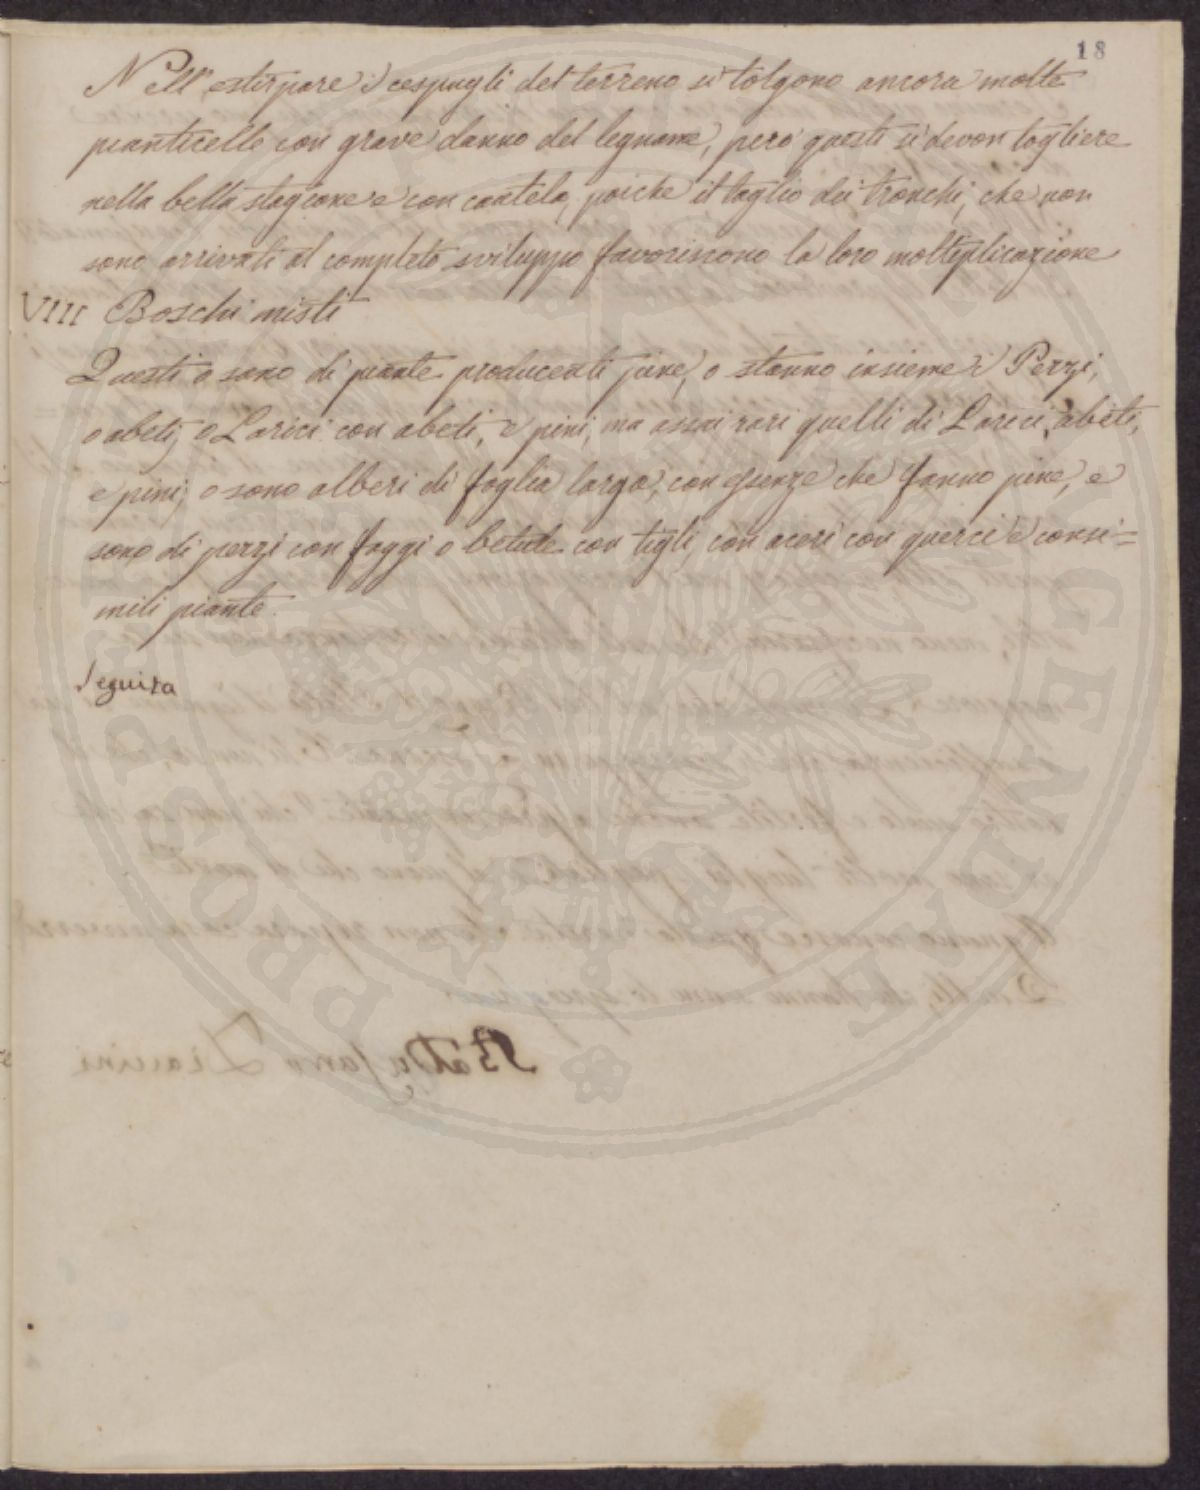 18
Nell'estirpare i cespugli del terreno si tolgono ancora molte
pianticelle con grave danno del legname, però questi si devon togliere
nella bella stagione e con cautela, poiche il taglio dei tronchi, che non
sono arrivati al completo sviluppo favoriscono la loro moltiplicazione
VIII Boschi misti
Questi o sono di piante producenti pine, o stanno insieme i Pezzi,
o abeti, o Larici con abeti, e pini, ma assai rari quelli di Larici, abeti,
e pini, o sono alberi di foglia larga, con essenze che fanno pine, e
sono di pezzi con faggi o betule con tigli, con aceri con querci e consi=
mili piante.
Seguita
PROSPERITATI
AUGENDAE